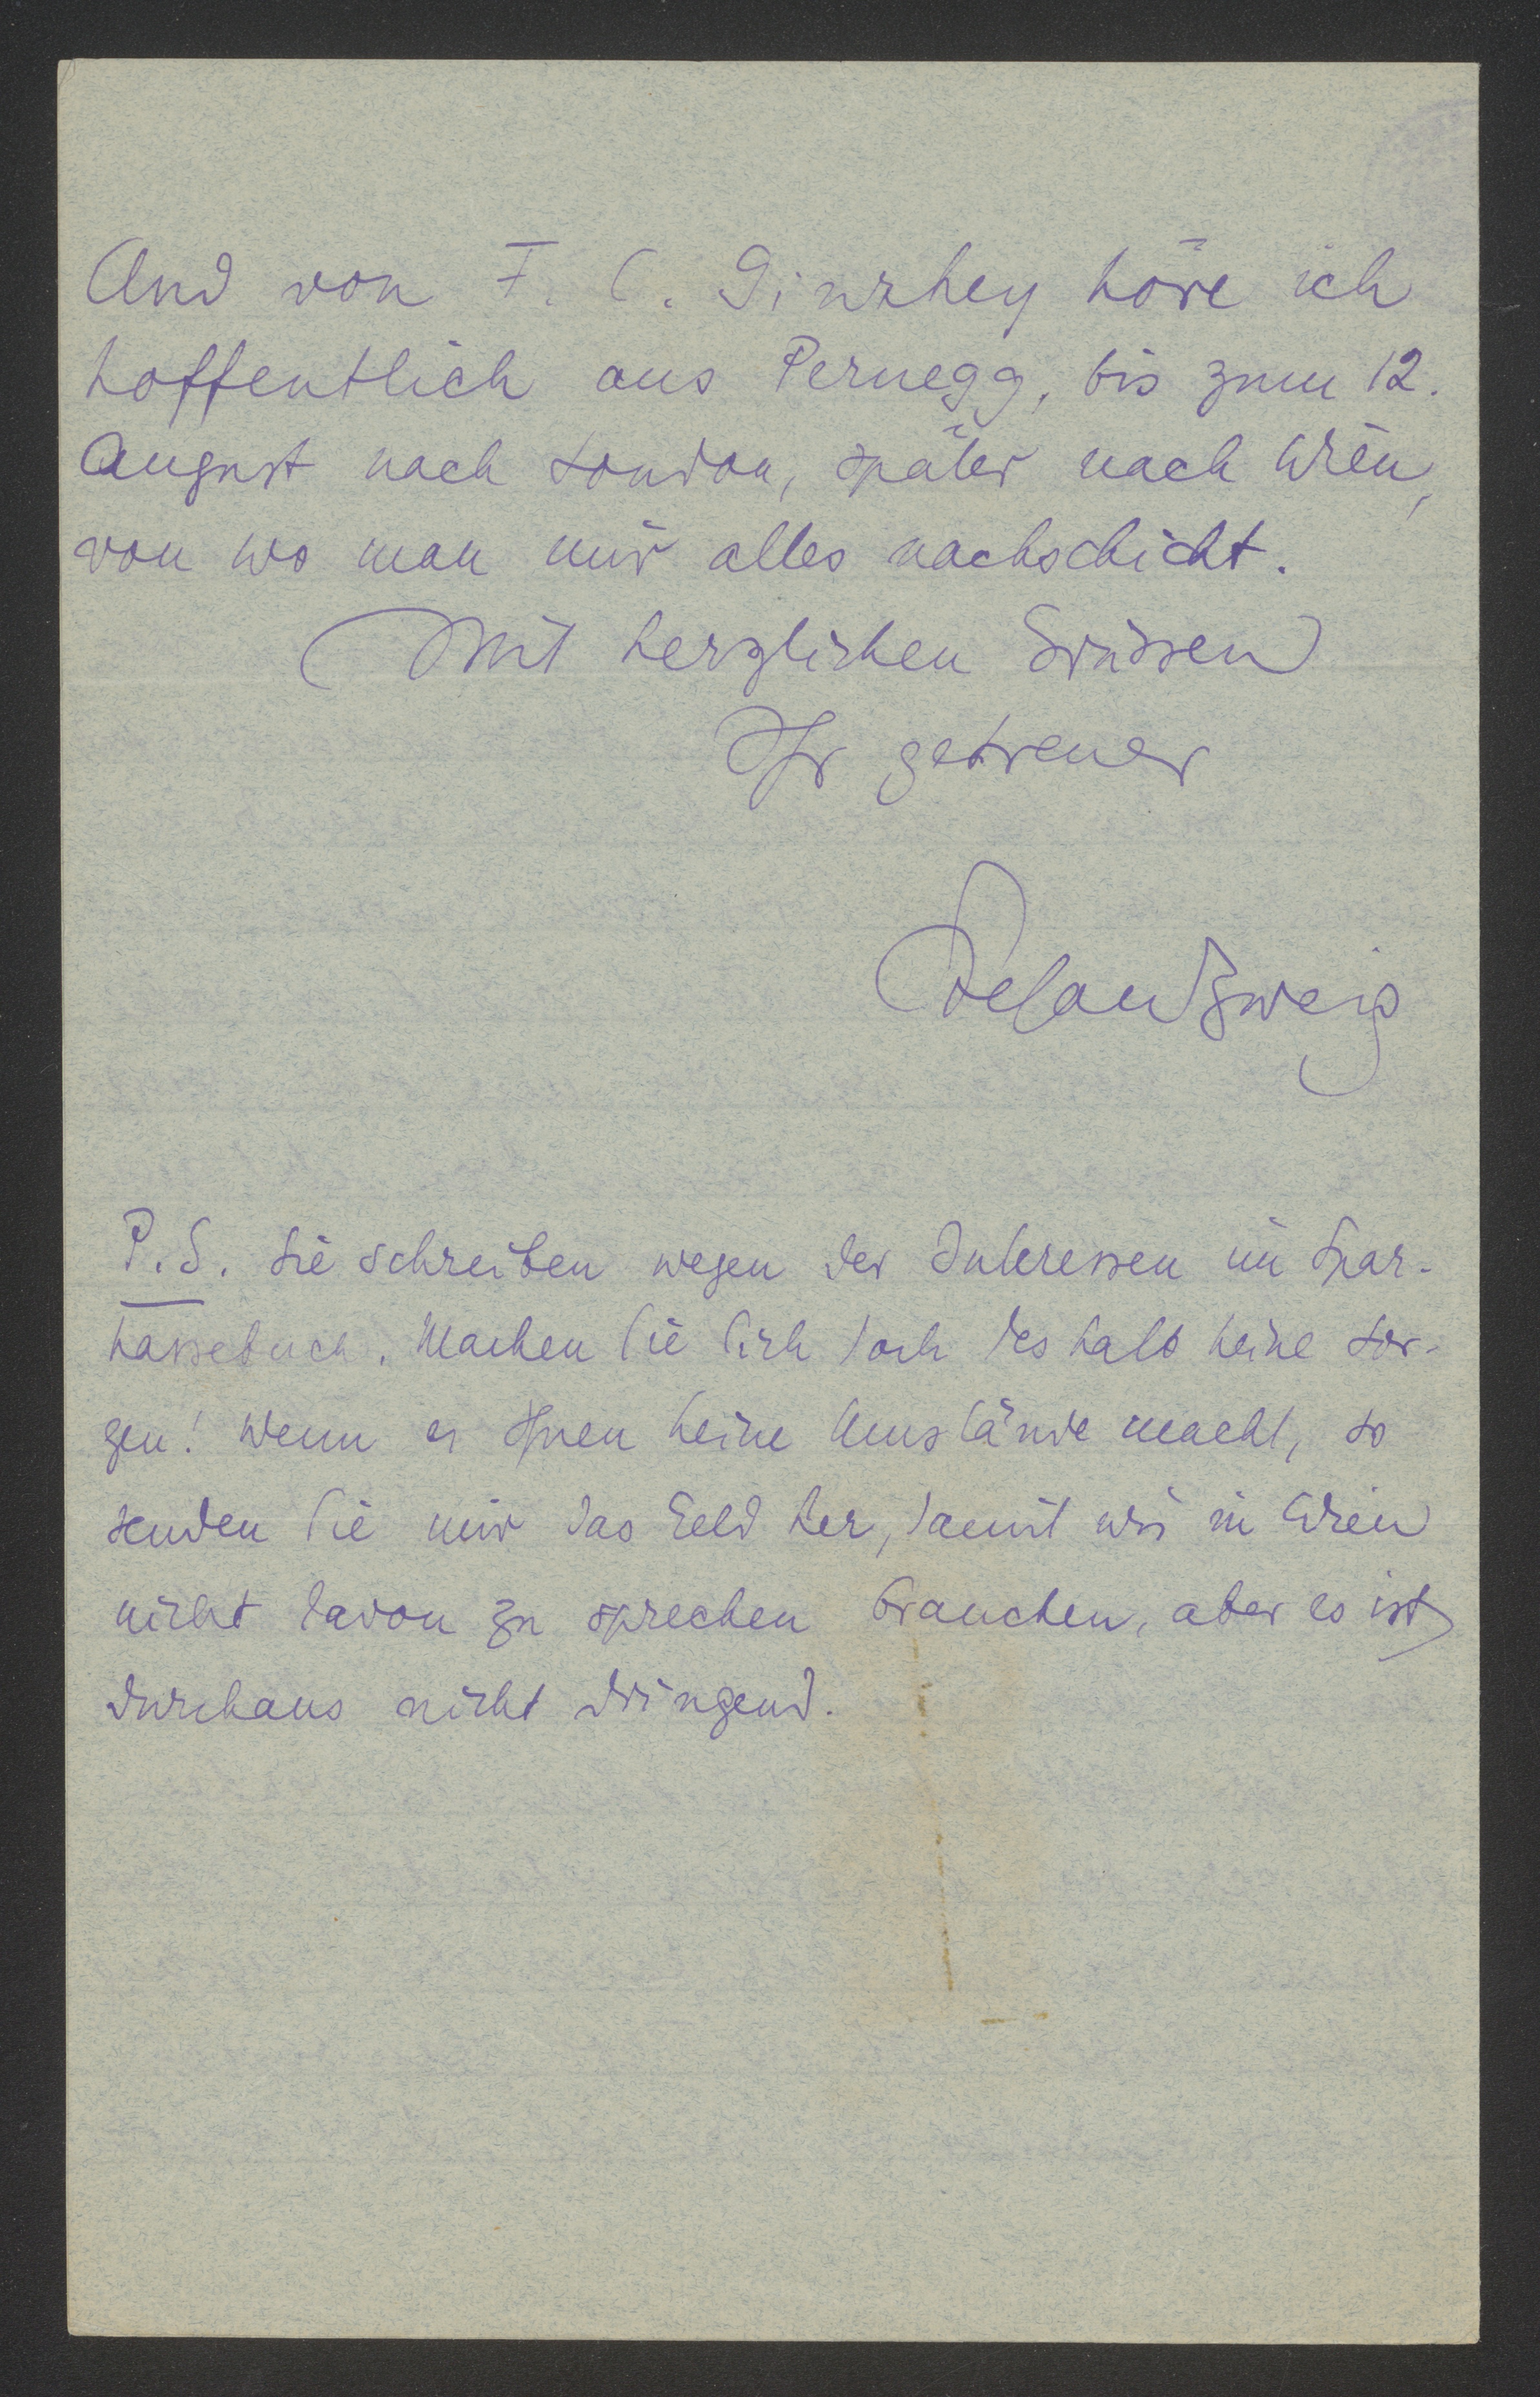 Und von F. C. Ginzkey höre ich
hoffentlich aus Pernegg, bis zum 12.
August nach London, später nach Wien,
von wo man mir alles nachschickt.
Mit herzlichen Grüssen
Ihr getreuer
Stefan Zweig
P.S. Sie schreiben wegen der Interessen im Spar-
kassebuch. Machen Sie sich doch deshalb keine Sor-
gen! Wenn es Ihnen keine Umstände macht, so
senden Sie mir das Geld her, damit wir in Wien
nicht davon zu sprechen brauchen, aber es ist
durchaus nicht dringend.